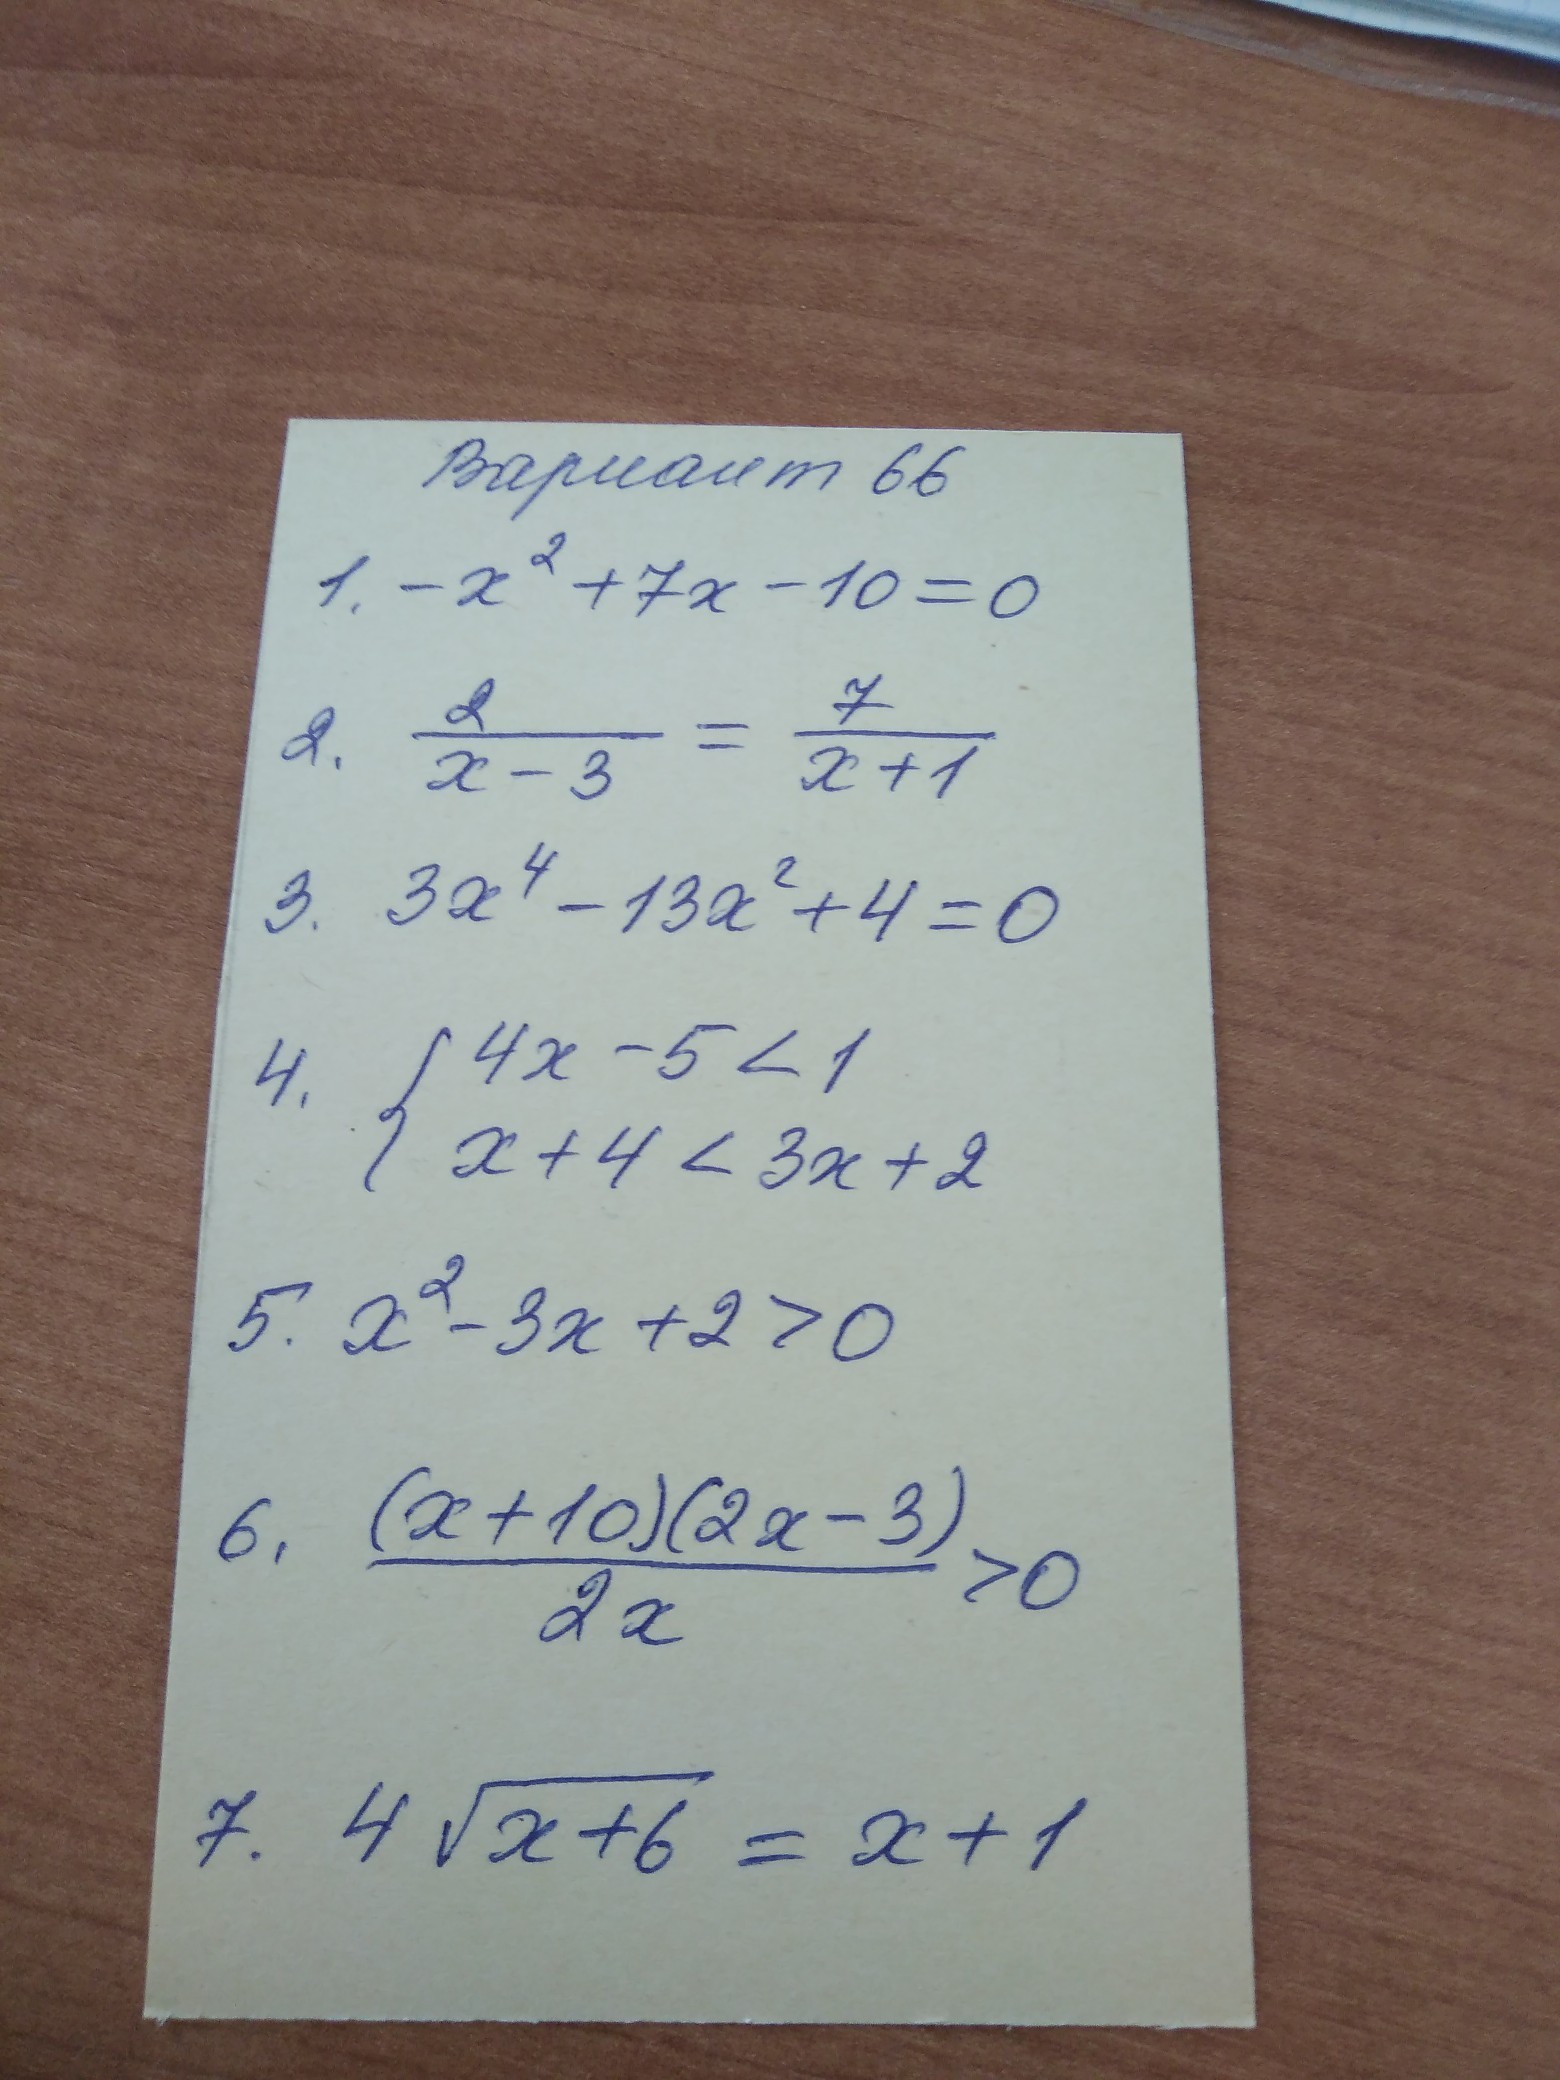 Вариант 66
1. -x² + 7x - 10 = 0
2. 2/(x - 3) = 7/(x + 1)
3. 3x⁴ - 13x² + 4 = 0
4. { 4x - 5 < 1
x + 4 < 3x + 2
5. x² - 3x + 2 > 0
6. (x + 10)(2x - 3)/2x > 0
7. 4√(x + 6) = x + 1